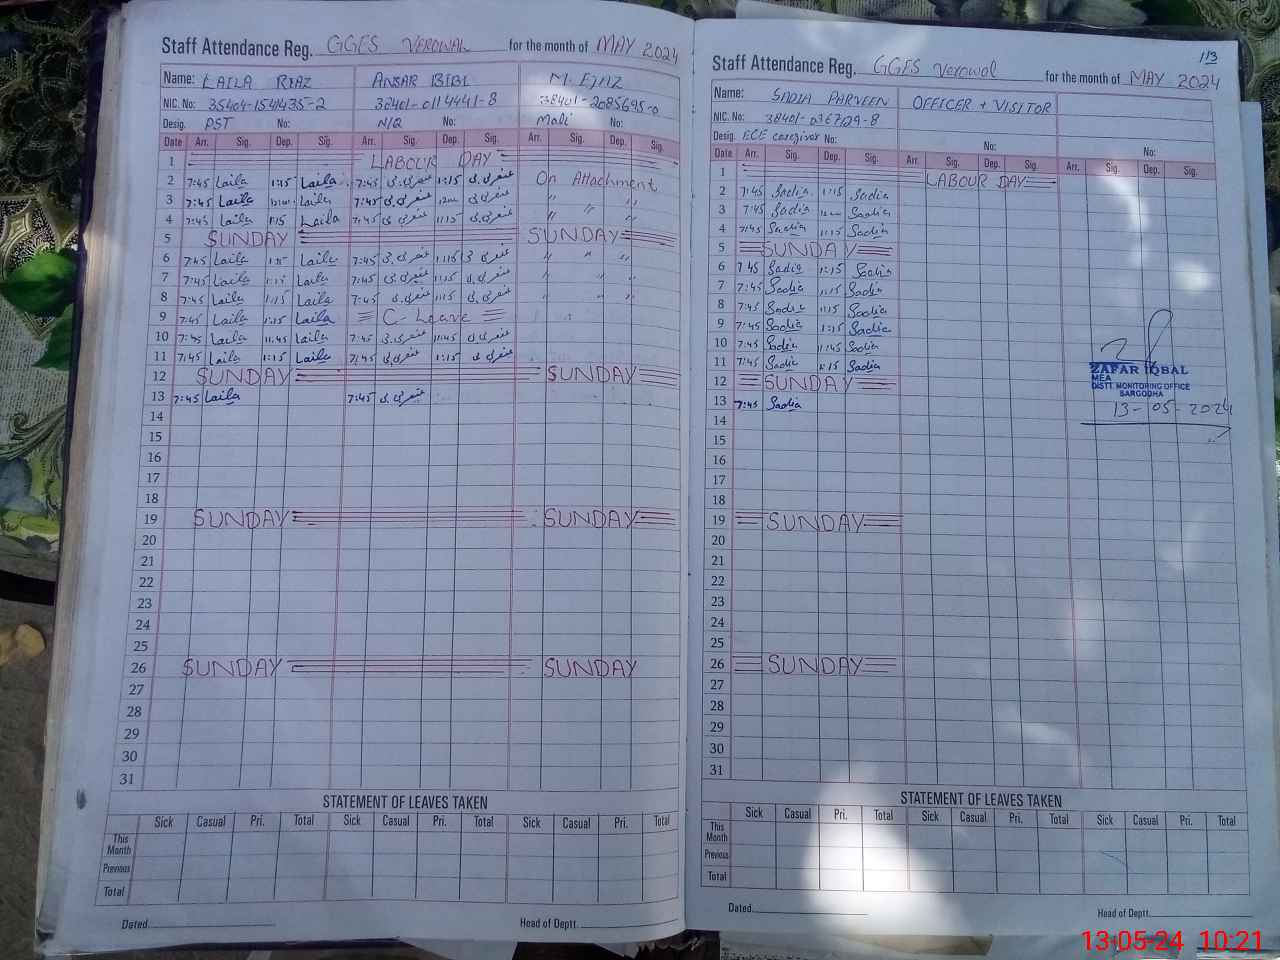 Staff Attendance Reg. GGES VEROWAL for the month of MAY 2024
Name: LAILA RIAZ ANSAR BIBI M. EJAZ
NIC. No: 35404-154435-2 38401-0114441-8 38401-2085695-0
Desig. PST No: N/Q No: Mali No:
Date Arr. Sig. Dep. Sig. Arr. Sig. Dep. Sig. Arr. Sig. Dep. Sig.
1 LABOUR DAY
2 7:45 Laila 1:15 Laila 7:45 1:15 On Attachment
3 7:45 Laila Laila 7:45 " " "
4 7:45 Laila 1:15 Laila 7:45 1:15 " " "
5 SUNDAY SUNDAY
6 7:45 Laila 1:15 Laila 7:45 1:15 " " "
7 7:45 Laila 1:15 Laila 7:45 1:15 " " "
8 7:45 Laila 1:15 Laila 7:45 1:15 " " "
9 7:45 Laila 1:15 Laila C-Leave
10 7:45 Laila 11:45 Laila 7:45 11:45
11 7:45 Laila 1:15 Laila 7:45 1:15
12 SUNDAY SUNDAY
13 7:45 Laila 7:45
14
15
16
17
18
19 SUNDAY SUNDAY
20
21
22
23
24
25
26 SUNDAY SUNDAY
27
28
29
30
31
STATEMENT OF LEAVES TAKEN
Sick Casual Pri. Total Sick Casual Pri. Total Sick Casual Pri. Total
This Month
Previous
Total
Dated Head of Deptt.
113
Staff Attendance Reg. GGES Verowal for the month of MAY 2024
Name: SADIA PARVEEN OFFICER + VISITOR
NIC. No: 38401-0367129-8
Desig. ECE caregiver No: No: No:
Date Arr. Sig. Dep. Sig. Arr. Sig. Dep. Sig. Arr. Sig. Dep. Sig.
1 LABOUR DAY
2 7:45 Sadia 1:15 Sadia
3 7:45 Sadia Sadia
4 7:45 Sadia 1:15 Sadia
5 SUNDAY
6 7:45 Sadia 1:15 Sadia
7 7:45 Sadia 1:15 Sadia
8 7:45 Sadia 1:15 Sadia
9 7:45 Sadia 1:15 Sadia
10 7:45 Sadia 11:45 Sadia
11 7:45 Sadia 1:15 Sadia
12 SUNDAY
13 7:45 Sadia
14
15
16
17
18
19 SUNDAY
20
21
22
23
24
25
26 SUNDAY
27
28
29
30
31
ZAFAR IQBAL
MEA
DISTT. MONITORING OFFICE
SARGODHA
13-05-2024
STATEMENT OF LEAVES TAKEN
Sick Casual Pri. Total Sick Casual Pri. Total Sick Casual Pri. Total
This Month
Previous
Total
Dated Head of Deptt.
13-05-24 10:21